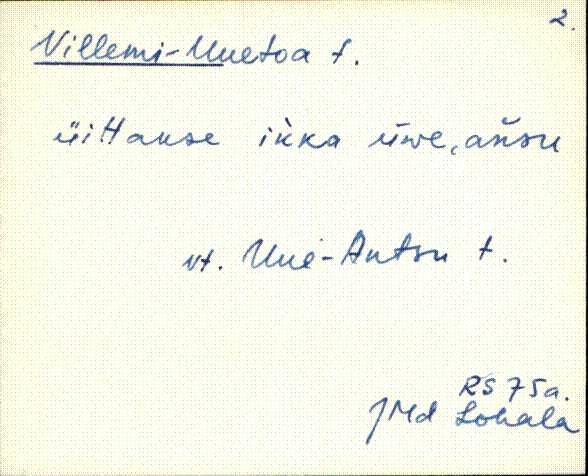 2.
Villemi-Uuetoa t.
üittanse ikka üwe, añsu
vt. Uue-Antsu t.
RS 75a.
JMd Lohala